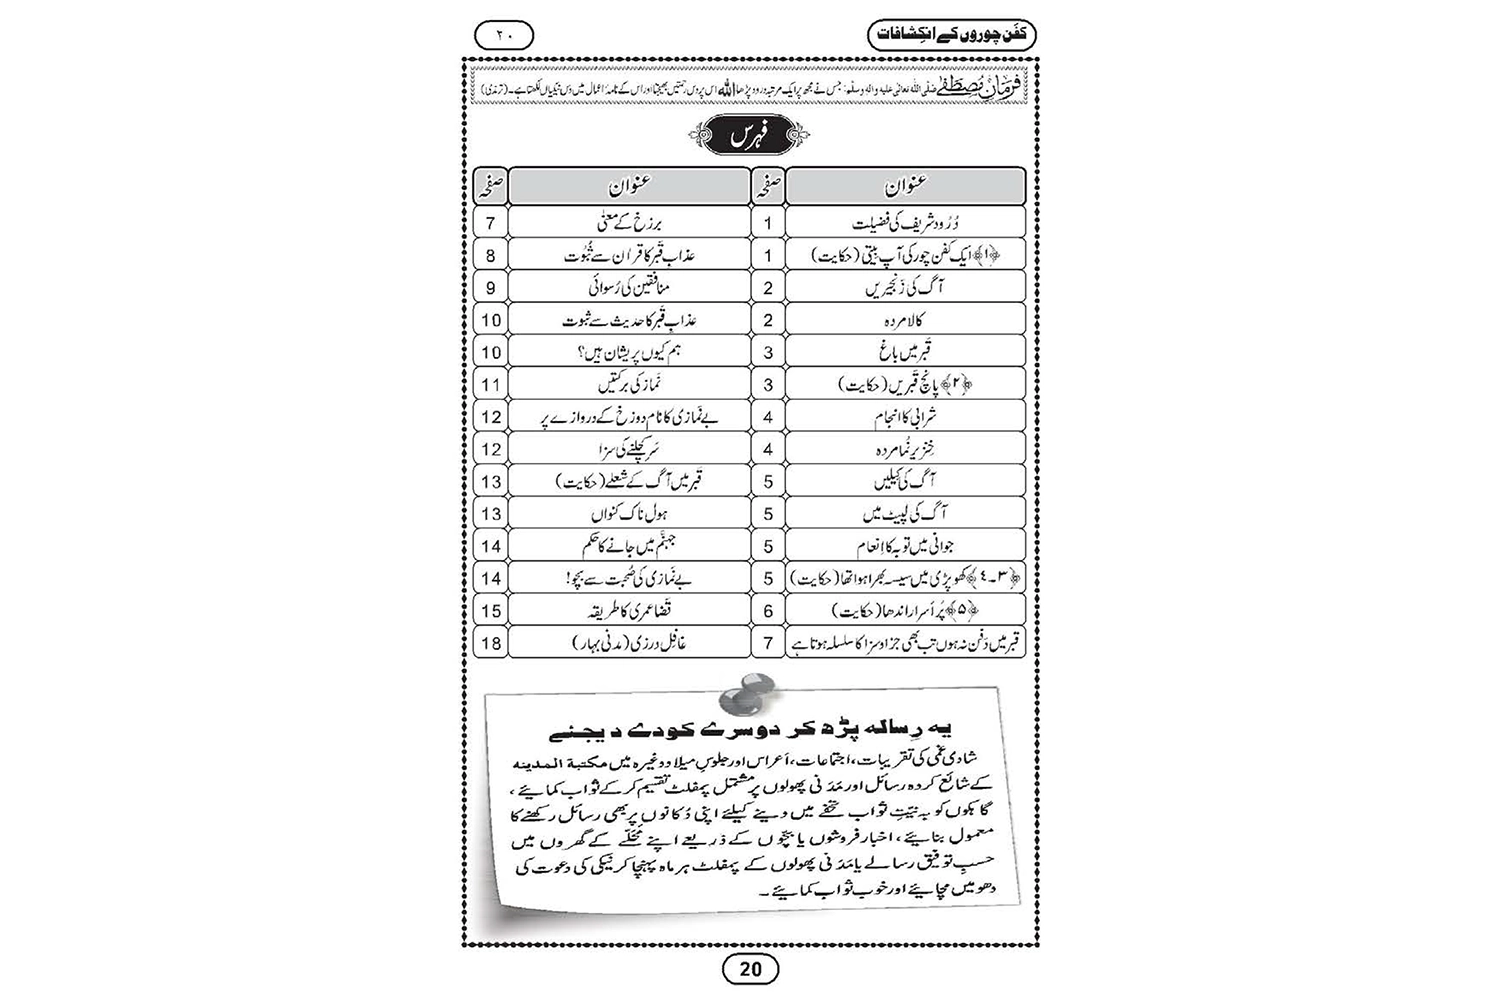 کفَن چوروں کے انکِشافات
۲۰
فرمانِ مُصطَفٰے صلَّی اللہ تعالیٰ علیہ والہٖ وسلَّم: جس نے مجھ پر ایک مرتبہ درود پڑھا اللہ اس پر دس رحمتیں بھیجتا اور اس کے نامۂ اعمال میں دس نیکیاں لکھتا ہے۔ (ترمذی)
فہرس
عنوان صفحہ عنوان صفحہ
دُرُود شریف کی فضیلت 1 برزخ کے معنٰی 7
﴿۱﴾ ایک کفن چور کی آپ بیتی (حکایت) 1 عذابِ قَبْر کا قراٰن سے ثُبُوت 8
آگ کی زَنجیریں 2 منافقین کی رُسوائی 9
کالا مردہ 2 عذابِ قَبْر کا حدیث سے ثبوت 10
قَبْر میں باغ 3 ہم کیوں پریشان ہیں؟ 10
﴿۲﴾ پانچ قَبْریں (حکایت) 3 نَماز کی برکتیں 11
شرابی کا انجام 4 بے نَمازی کا نام دوزخ کے دروازے پر 12
خِنزیر نُما مردہ 4 سَر کچلنے کی سزا 12
آگ کی کِیلیں 5 قَبْر میں آگ کے شعلے (حکایت) 13
آگ کی لپیٹ میں 5 ہول ناک کنواں 13
جوانی میں توبہ کا اِنعام 5 جہنَّم میں جانے کا حکم 14
﴿۳۔٤﴾ کھوپڑی میں سیسہ بھرا ہوا تھا (حکایت) 5 بے نَمازی کی صُحبت سے بچو! 14
﴿۵﴾ پُر اَسرار اندھا (حکایت) 6 قَضا عمری کا طریقہ 15
قبر میں دَفن نہ ہوں تب بھی جزا و سزا کا سلسلہ ہوتا ہے 7 غافِل درزی (مدنی بہار) 18
یہ رِسالہ پڑھ کر دوسرے کو دے دیجئے
شادی غمی کی تقریبات، اجتماعات، اَعراس اور جلوسِ میلاد وغیرہ میں مکتبۃ المدینہ
کے شائع کردہ رسائل اور مَدَنی پھولوں پر مشتمل پمفلٹ تقسیم کر کے ثواب کمائیے،
گاہکوں کو بہ نیّتِ ثواب تحفے میں دینے کیلئے اپنی دُکانوں پر بھی رسائل رکھنے کا
معمول بنائیے، اخبار فروشوں یا بچّوں کے ذَرِیعے اپنے مَحَلّے کے گھروں میں
حسبِ توفیق رسالے یا مَدَنی پھولوں کے پمفلٹ ہر ماہ پہنچا کر نیکی کی دعوت کی
دھومیں مچائیے اور خوب ثواب کمائیے۔
20